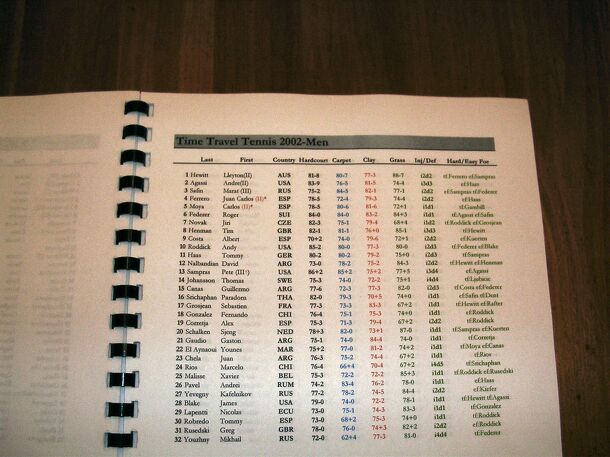 Time Travel Tennis 2002-Men
Last First Country Hardcourt Carpet Clay Grass Inj/Def Hard/Easy Foe
1 Hewitt Lleyton(II) AUS 81-8 80-7 77-3 88-7 i2d2 tf:Ferrero ef:Sampras
2 Agassi Andre(II) USA 83-9 76-5 81-5 74-4 i3d3 ef:Haas
3 Safin Marat (III) RUS 75-2 84-5 82-1 74-4 i2d2 ef:Sampras tf:Federer
4 Ferrero Juan Carlos (II)* ESP 78-5 72-4 79-3 74-4 i2d2 ef:Haas
5 Moya Carlos (II)* ESP 78-5 80-6 81-6 72+1 i1d1 tf:Gambill
6 Federer Roger SUI 84-0 84-0 83-2 84+3 i1d1 tf:Agassi ef:Safin
7 Novak Jiri CZE 82-3 75-1 79-4 68+4 i1d2 tf:Roddick ef:Grosjean
8 Henman Tim GBR 82-1 81-1 76+0 85-1 i3d3 tf:Hewitt
9 Costa Albert ESP 70+2 74-0 79-6 72+1 i2d2 ef:Kuerten
10 Roddick Andy USA 85-2 80-0 77-3 80-0 i2d3 tf:Federer ef:Blake
11 Haas Tommy GER 80-2 80-2 79-2 75+0 i2d3 tf:Sampras
12 Nalbandian David ARG 73-0 78-2 75-2 84-3 i2d2 tf:Hewitt ef:Henman
13 Sampras Pete USA 86+2 85+2 75+2 77+5 i3d4 ef:Agassi
14 Johansson Thomas SWE 75-3 74-0 72-2 75+1 i4d4 tf:Ljubicic
15 Canas Guillermo ARG 77-6 72-3 77-3 82-0 i2d3 tf:Costa ef:Federer
16 Srichaphan Paradorn THA 82-0 79-3 70+5 74+0 i1d1 ef:Safin tf:Dent
17 Grosjean Sebastien FRA 77-3 73-3 83-3 67+2 i1d1 tf:Hewitt ef:Rafter
18 Gonzalez Fernando CHI 76-4 75-1 75-3 74+0 i1d1 tf:Roddick
19 Corretja Alex ESP 75-3 71-3 79-4 67+2 i2d2 tf:Roddick
20 Schalken Sjeng NED 78+3 82-0 73+1 87-0 i1d1 tf:Sampras ef:Kuerten
21 Gaudio Gaston ARG 75-1 74-0 84-4 74-0 i1d1 ef:Corretja
22 El Aynaoui Younes MAR 75+2 77-0 81-2 74+2 i1d1 tf:Moya ef:Canas
23 Chela Juan ARG 76-3 75-2 74-4 67+2 i1d1 ef:Rios
24 Rios Marcelo CHI 76-4 66+4 70-4 67+2 i4d5 tf:Srichaphan
25 Malisse Xavier BEL 75-3 72-2 72-2 85+3 i1d1 tf:Roddick ef:Rusedski
26 Pavel Andrei RUM 74-2 83-4 76-2 78-0 i1d1 ef:Haas
27 Yevgeny Kafelnikov RUS 77-2 78-2 74-5 84-4 i2d2 ef:Kiefer
28 Blake James USA 79-0 74-0 72-2 78-1 i1d1 tf:Hewitt tf:Agassi
29 Lapentti Nicolas ECU 73-0 75-1 74-3 83-3 i1d1 ef:Gonzalez
30 Robredo Tommy ESP 73-0 68+2 75-3 74+0 i1d1 tf:Roddick
31 Rusedski Greg GBR 78-0 76-0 74+3 82+2 i2d2 ef:Roddick
32 Youzhny Mikhail RUS 72-0 62+4 77-3 81-0 i4d4 tf:Federer